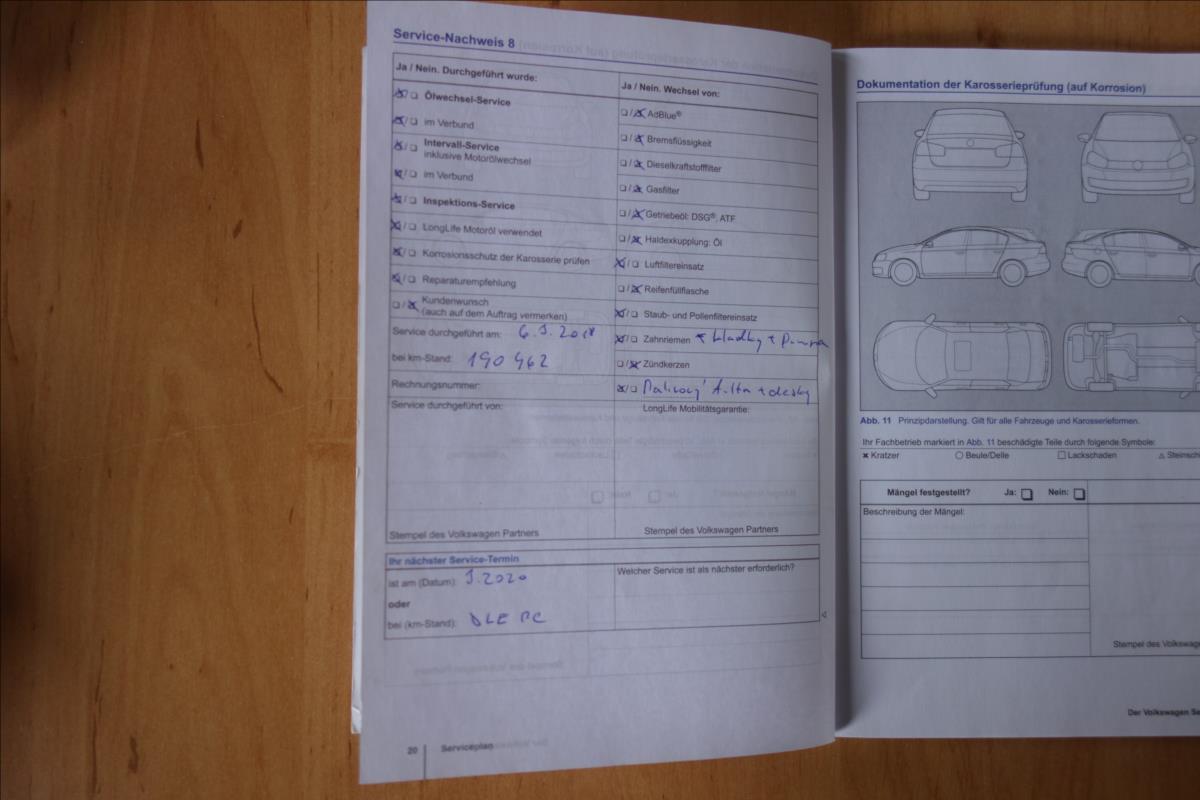 Service-Nachweis 8
Ja / Nein. Durchgeführt wurde:
Ölwechsel-Service
im Verbund
Intervall-Service
inklusive Motorölwechsel
im Verbund
Inspektions-Service
LongLife Motoröl verwendet
Korrosionsschutz der Karosserie prüfen
Reparaturempfehlung
Kundenwunsch
(auch auf dem Auftrag vermerken)
Service durchgeführt am:
bei km-Stand: 190 462
Rechnungsnummer:
Service durchgeführt von:
Stempel des Volkswagen Partners
Ja / Nein. Wechsel von:
AdBlue®
Bremsflüssigkeit
Dieselkraftstofffilter
Gasfilter
Getriebeöl: DSG®, ATF
Haldexkupplung: Öl
Luftfiltereinsatz
Reifenfüllflasche
Staub- und Pollenfiltereinsatz
Zahnriemen + kladky +
Zündkerzen
LongLife Mobilitätsgarantie:
Stempel des Volkswagen Partners
Ihr nächster Service-Termin
ist am (Datum): 2020
oder
bei (km-Stand): DLE PC
Welcher Service ist als nächster erforderlich?
20 Serviceplan
Dokumentation der Karosserieprüfung (auf Korrosion)
Abb. 11 Prinzipdarstellung. Gilt für alle Fahrzeuge und Karosserieformen.
Ihr Fachbetrieb markiert in Abb. 11 beschädigte Teile durch folgende Symbole:
× Kratzer ○ Beule/Delle □ Lackschaden △ Steinschl
Mängel festgestellt? Ja: Nein:
Beschreibung der Mängel:
Stempel des Volkswagen
Der Volkswagen Se